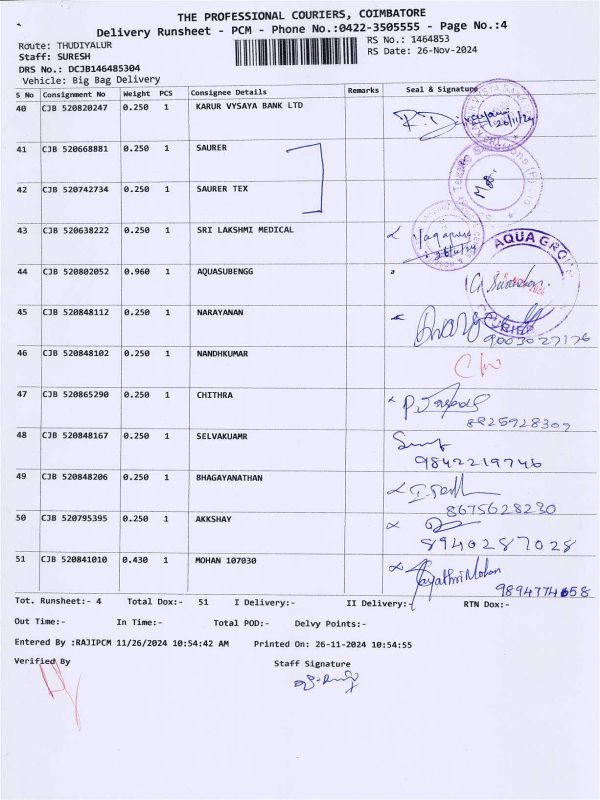 THE PROFESSIONAL COURIERS, COIMBATORE
Delivery Runsheet - PCM - Phone No.:0422-3505555 - Page No.:4
Route: THUDIYALUR
RS No.: 1464853
Staff: SURESH
RS Date: 26-Nov-2024
DRS No.: DCJB146485304
Vehicle: Big Bag Delivery
S No Consignment No Weight PCS Consignee Details Remarks Seal & Signature
40 CJB 520820247 0.250 1 KARUR VYSAYA BANK LTD
26/11/24
41 CJB 520668881 0.250 1 SAURER
42 CJB 520742734 0.250 1 SAURER TEX
43 CJB 520638222 0.250 1 SRI LAKSHMI MEDICAL
26/11/24
44 CJB 520802052 0.960 1 AQUASUBENGG
AQUA GROUP
45 CJB 520848112 0.250 1 NARAYANAN
9003027176
46 CJB 520848102 0.250 1 NANDHKUMAR
47 CJB 520865290 0.250 1 CHITHRA
8825928309
48 CJB 520848167 0.250 1 SELVAKUAMR
9842219746
49 CJB 520848206 0.250 1 BHAGAYANATHAN
8675628230
50 CJB 520795395 0.250 1 AKKSHAY
8940287028
51 CJB 520841010 0.430 1 MOHAN 107030
Gayathri Mohan
9894774658
Tot. Runsheet:- 4 Total Dox:- 51 I Delivery:- II Delivery:- RTN Dox:-
Out Time:- In Time:- Total POD:- Delvy Points:-
Entered By :RAJIPCM 11/26/2024 10:54:42 AM Printed On: 26-11-2024 10:54:55
Verified By Staff Signature